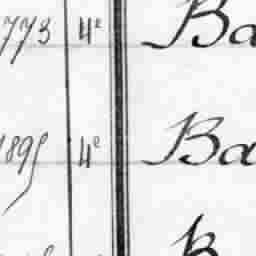 1773 4e Ba
1895 4e Ba
B